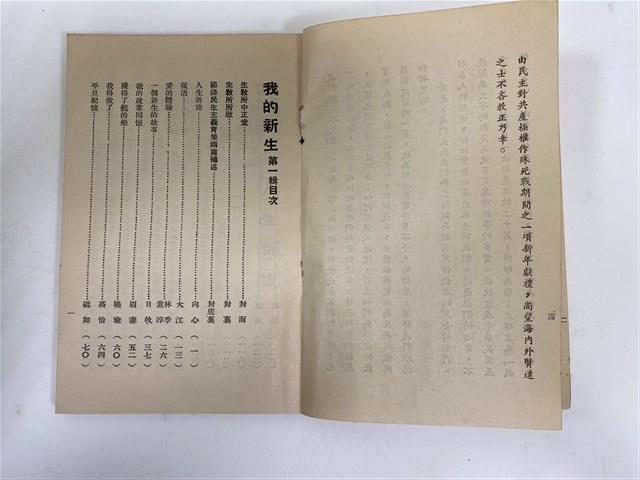 由民主對共產極權作殊死戰期間之一項新年獻禮，尚望海內外賢達
之士不吝教正乃幸。
四
我的新生 第一輯目次
生教所中正堂 封面
生教所所歌 封裏
節錄民生主義育樂兩篇補述 封底裏
人生新旅 向心（一）
復活 大江（一三）
愛的體驗 林季 童淳（二六）
一個新生的故事 日牧（三七）
我的就業回憶 眉壽（五二）
獲得了舵的船 曉瑜（六〇）
我得救了 高怡（六四）
平旦紀懷 砥如（七〇）
一